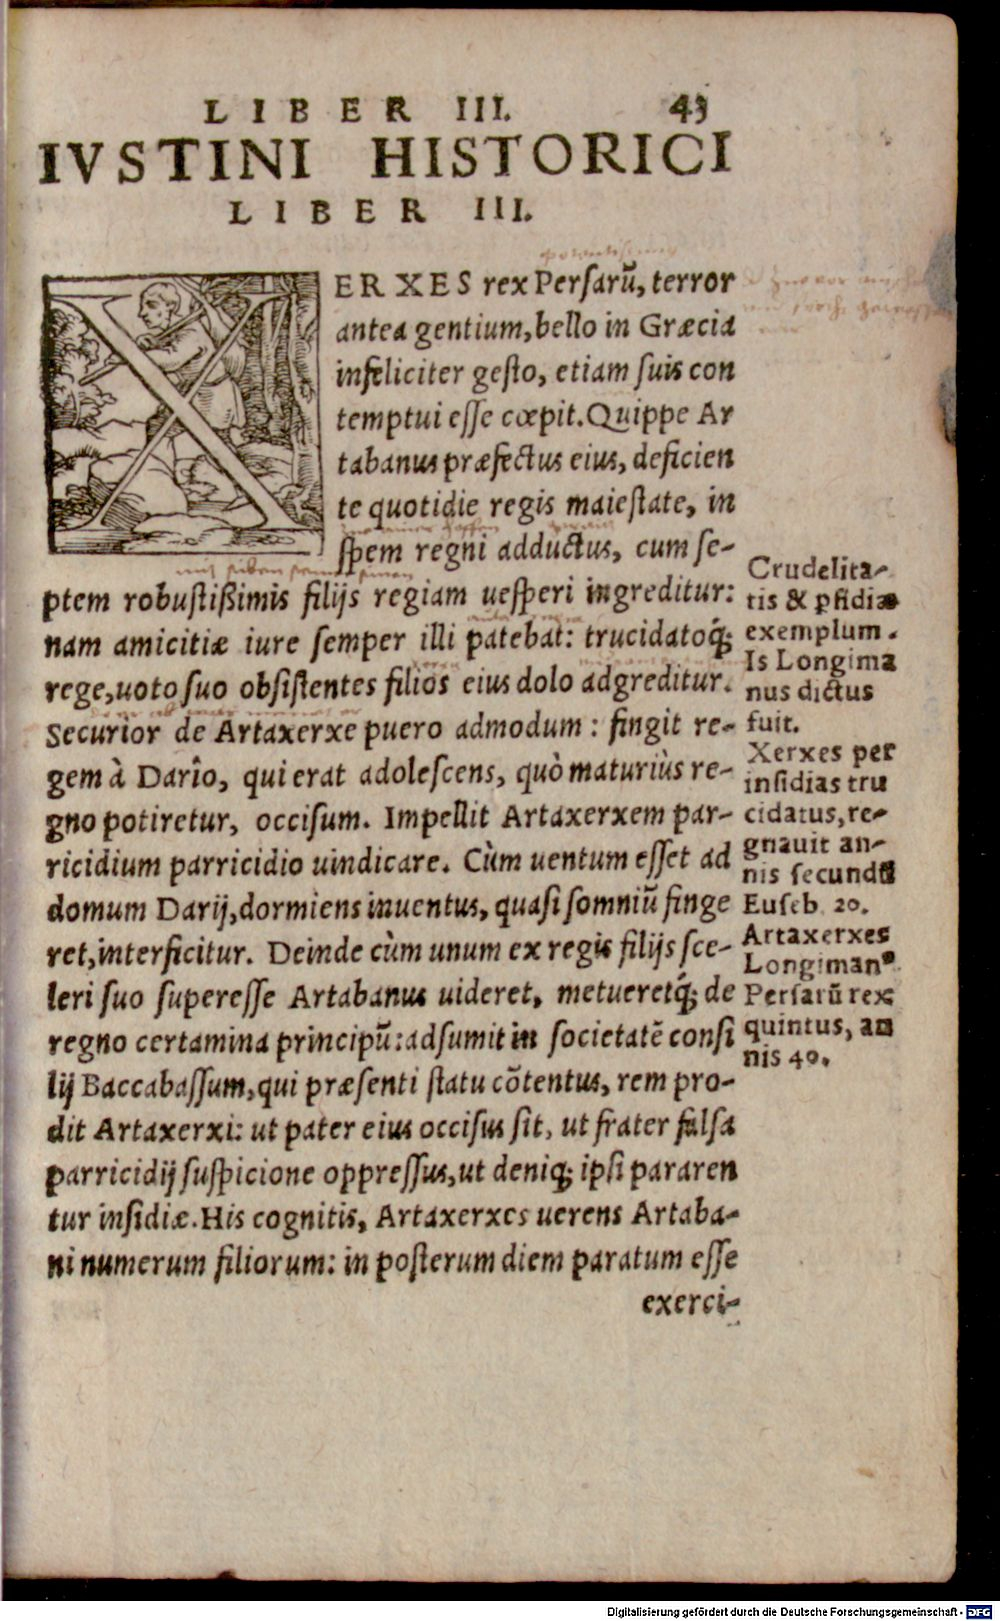 LIBER III. 43
IVSTINI HISTORICI
LIBER III.
XERXES rex Persarũ, terror
antea gentium, bello in Græcia
infeliciter gesto, etiam suis con
temptui esse cœpit. Quippe Ar
tabanus præfectus eius, deficien
te quotidie regis maiestate, in
spem regni adductus, cum se-
ptem robustißimis filijs regiam uesperi ingreditur:
nam amicitiæ iure semper illi patebat: trucidatoq́;
rege, uoto suo obsistentes filios eius dolo adgreditur.
Securior de Artaxerxe puero admodum: fingit re-
gem à Darîo, qui erat adolescens, quò maturiùs re-
gno potiretur, occisum. Impellit Artaxerxem par-
ricidium parricidio uindicare. Cùm uentum esset ad
domum Darij, dormiens inuentus, quasi somniũ finge
ret, interficitur. Deinde cùm unum ex regis filijs sce-
leri suo superesse Artabanus uideret, metueretq́; de
regno certamina principũ: adsumit in societatẽ consi
lij Baccabassum, qui præsenti statu cõtentus, rem pro-
dit Artaxerxi: ut pater eius occisus sit, ut frater falsa
parricidij suspicione oppressus, ut deniq; ipsi pararen
tur insidiæ. His cognitis, Artaxerxes uerens Artaba-
ni numerum filiorum: in posterum diem paratum esse
exerci-
Crudelita-
tis & ꝑfidiæ
exemplum.
Is Longima
nus dictus
fuit.
Xerxes per
insidias tru
cidatus, re-
gnauit an-
nis secundũ
Euseb. 20.
Artaxerxes
Longimanꝰ
Persarũ rex
quintus, an
nis 40.
Digitalisierung gefördert durch die Deutsche Forschungsgemeinschaft - DFG